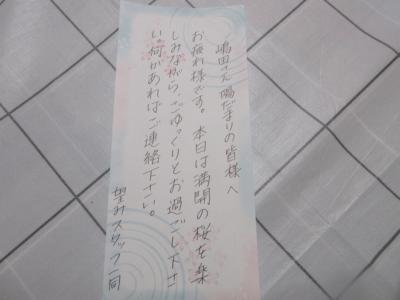 嶋田さん陽だまりの皆様へ
お疲れ様です。本日は満開の桜を楽
しみながら、ごゆっくりとお過ごし下さ
い。何かあればご連絡下さい。
望みスタッフ一同